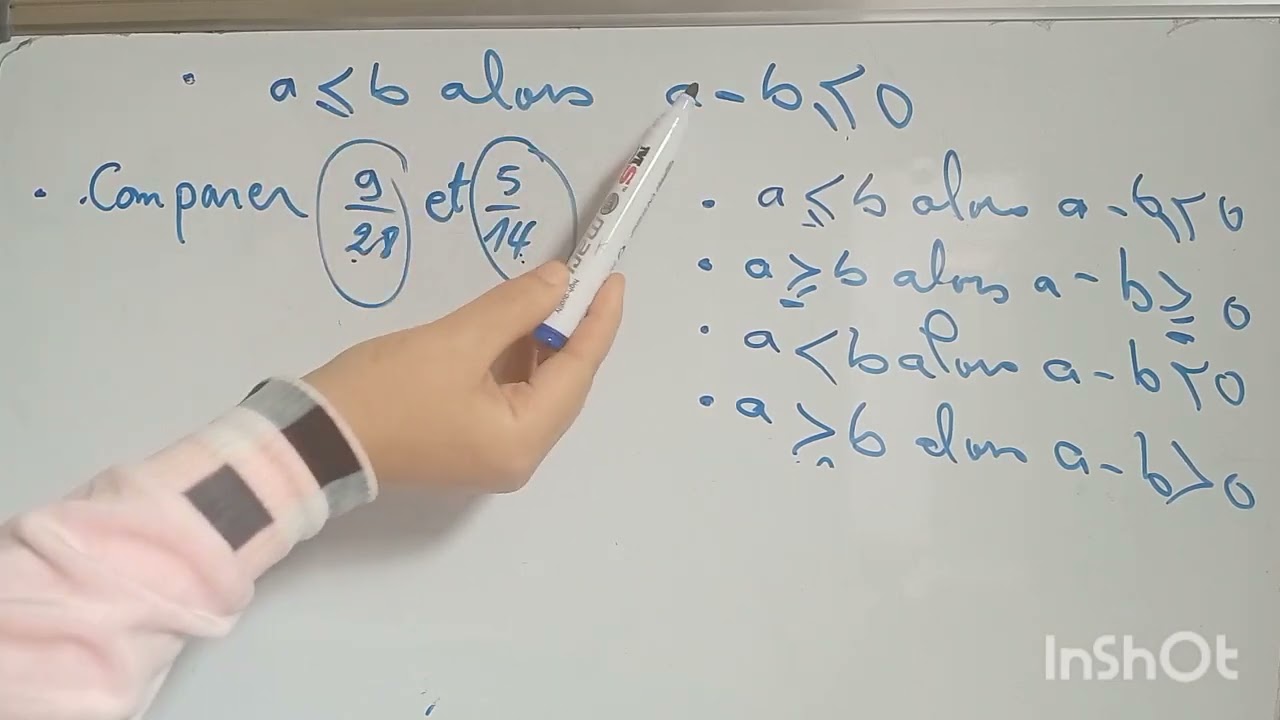 • a ⩽ b alors a - b ⩽ 0
• Comparer 9/28 et 5/14
• a ⩽ b alors a - b ⩽ 0
• a ≥ b alors a - b ≥ 0
• a < b alors a - b < 0
• a ≥ b alors a - b > 0
MS
InShOt